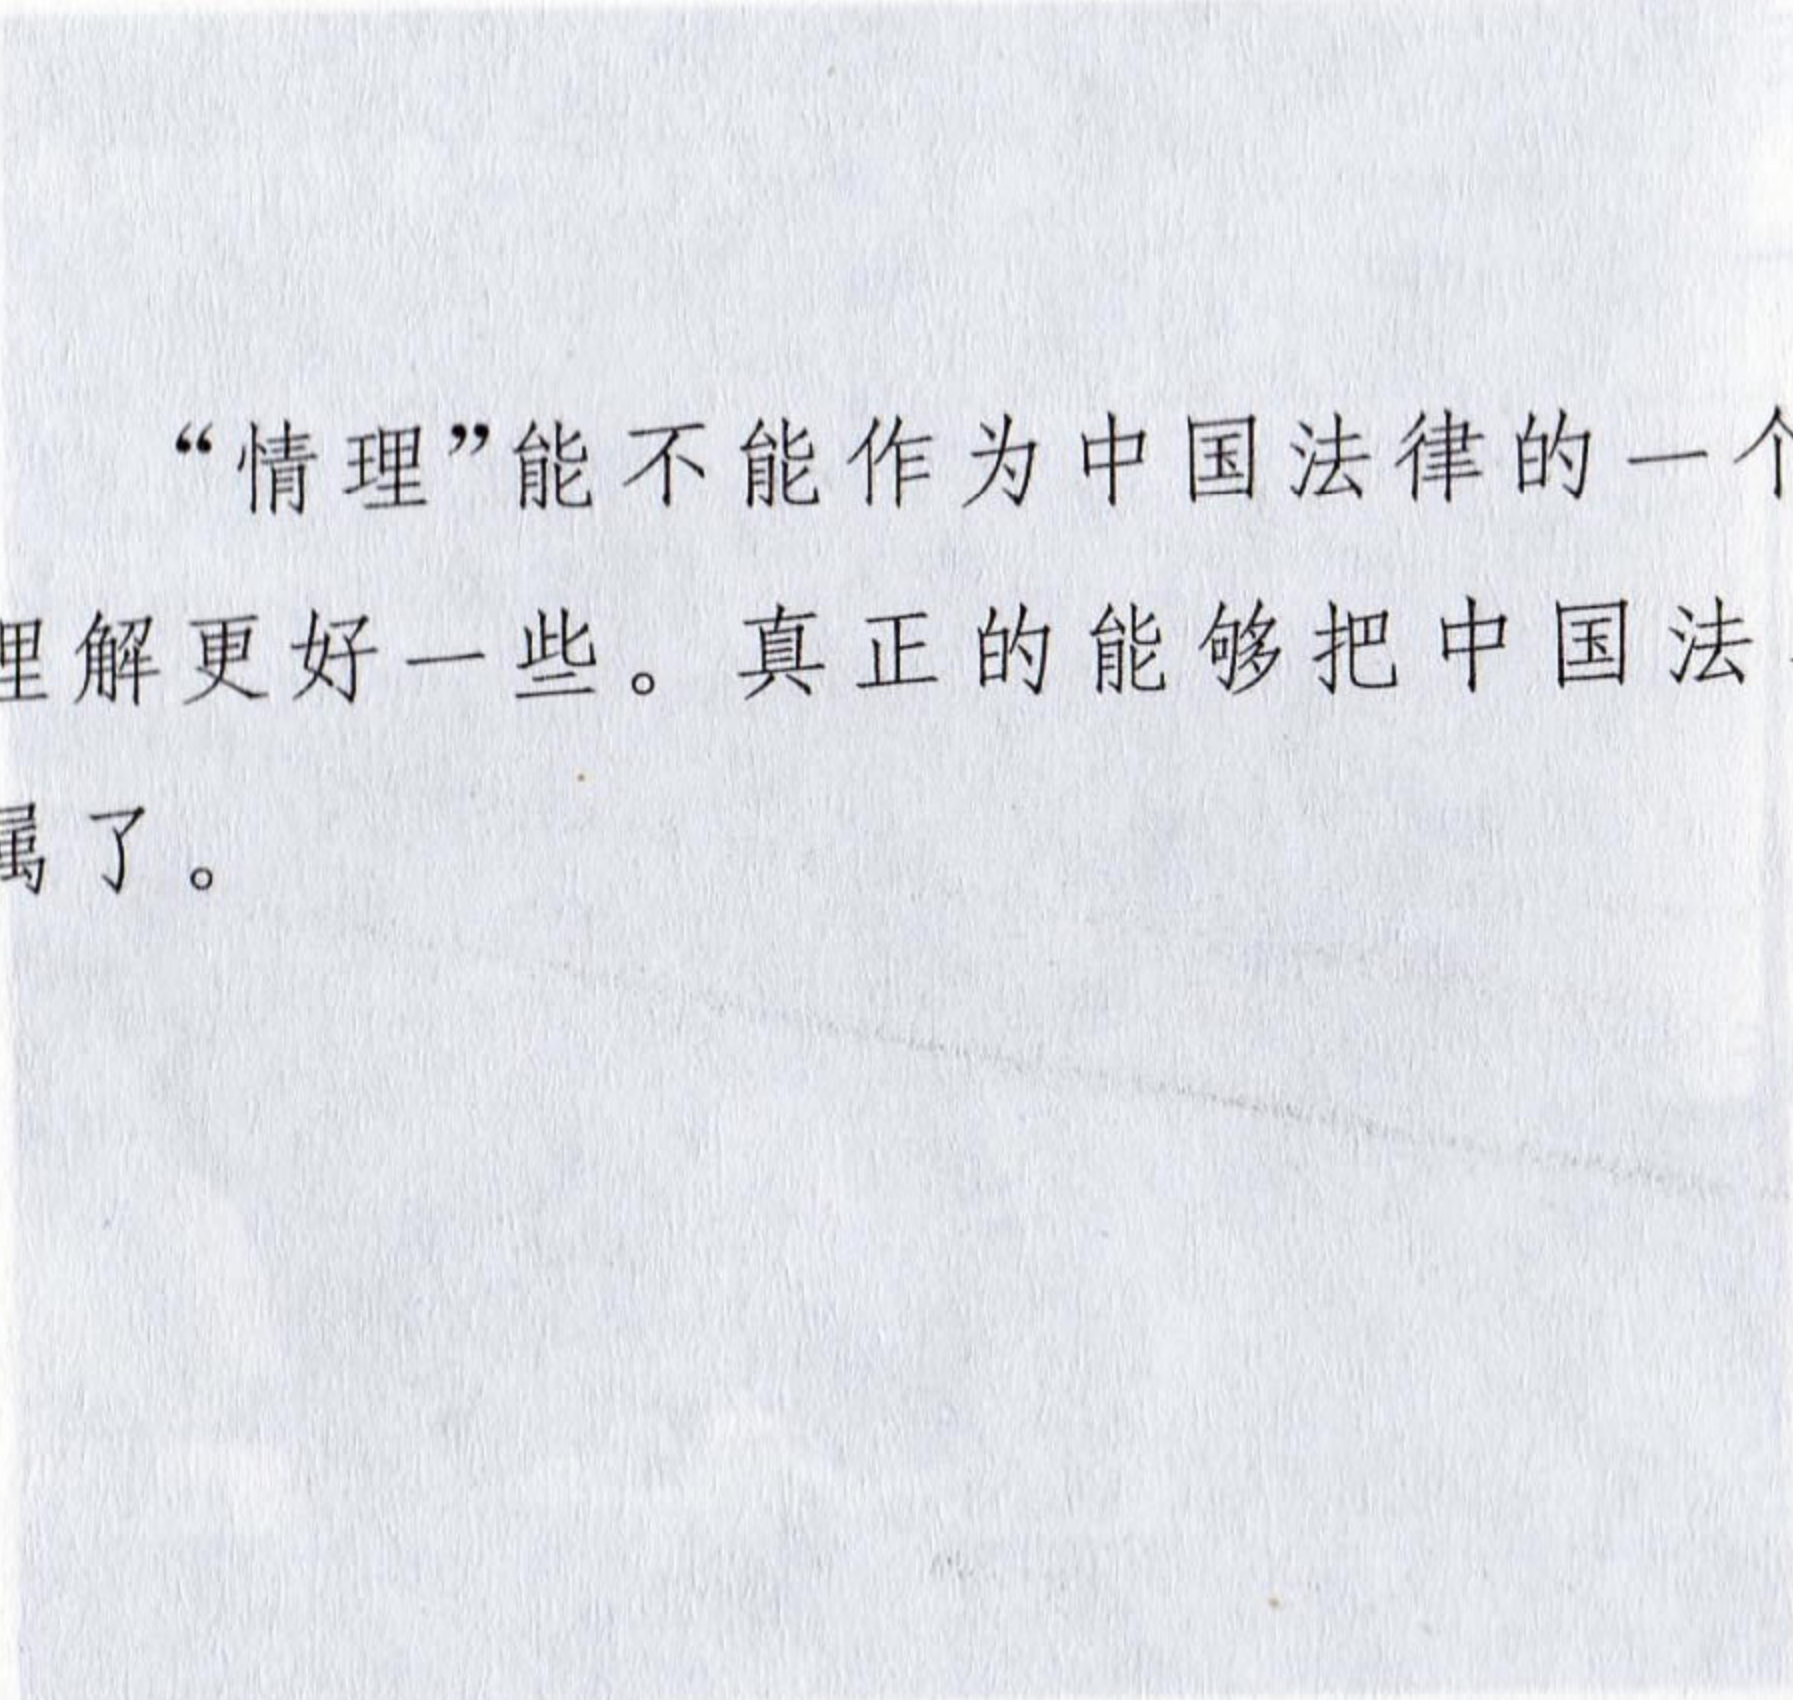 “情理”能不能作为中国法律的一个
理解更好一些。真正的能够把中国法
属了。